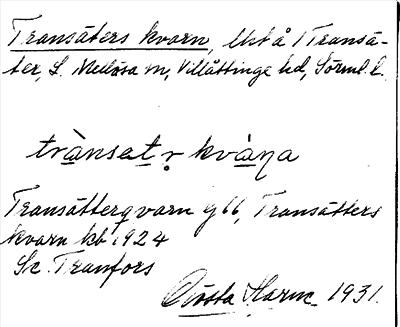 Transäters kvarn, Ust å 1 Transä-
ter, L. Mellösa sn, Villåttinge hd, Sörml. l.
trànsat r kvàṇa
Transätterqvarn g 66, Transätters
kvarn kb 1924
Se Tranfors
Gösta Harne 1931.